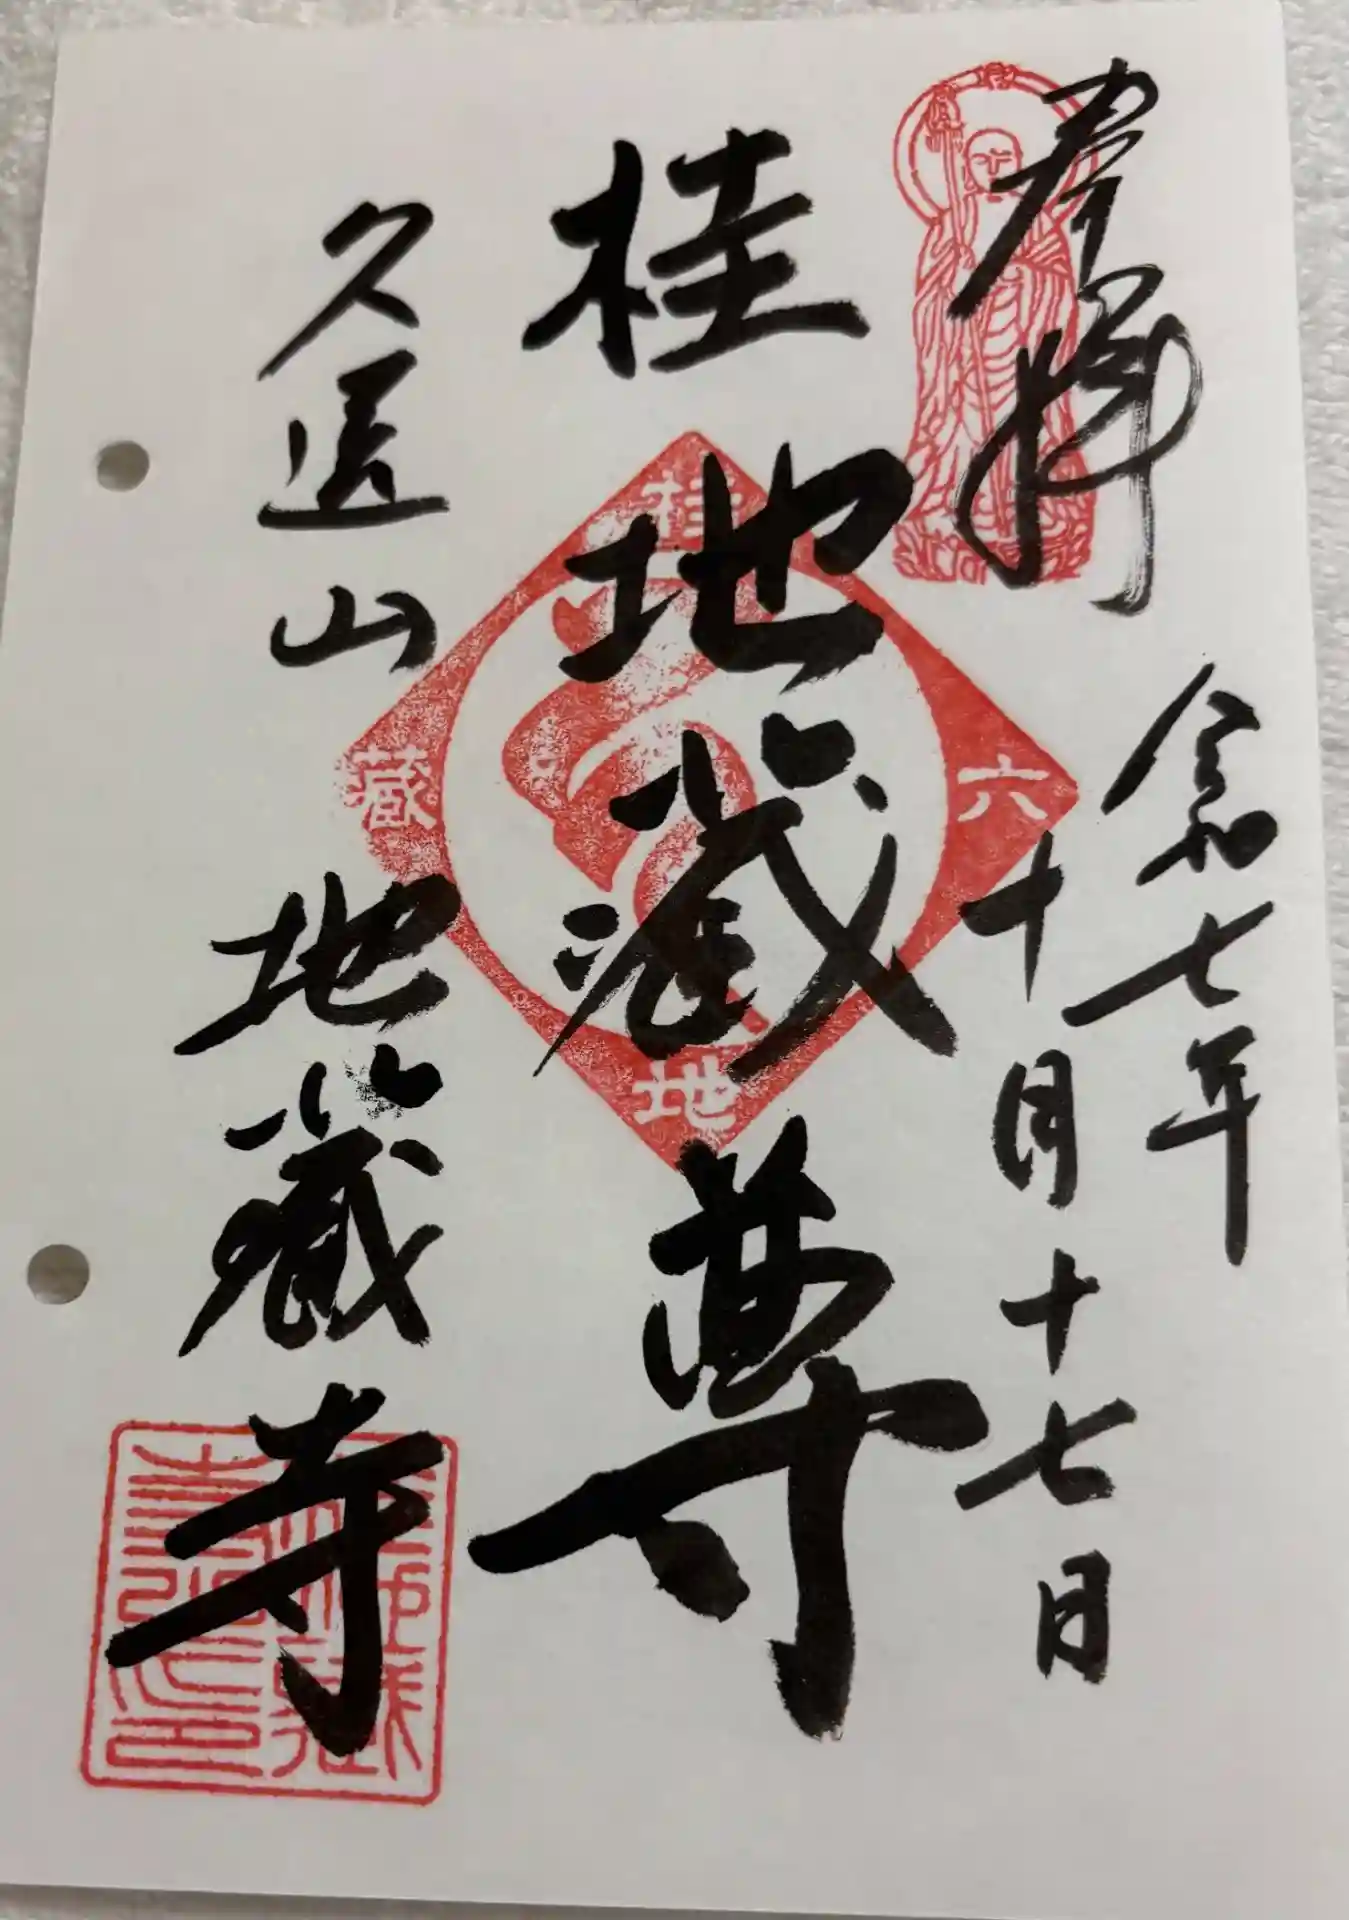 奉拝
令和七年
十月十七日
桂地蔵尊
桂
六
地
蔵
久遠山
地蔵寺